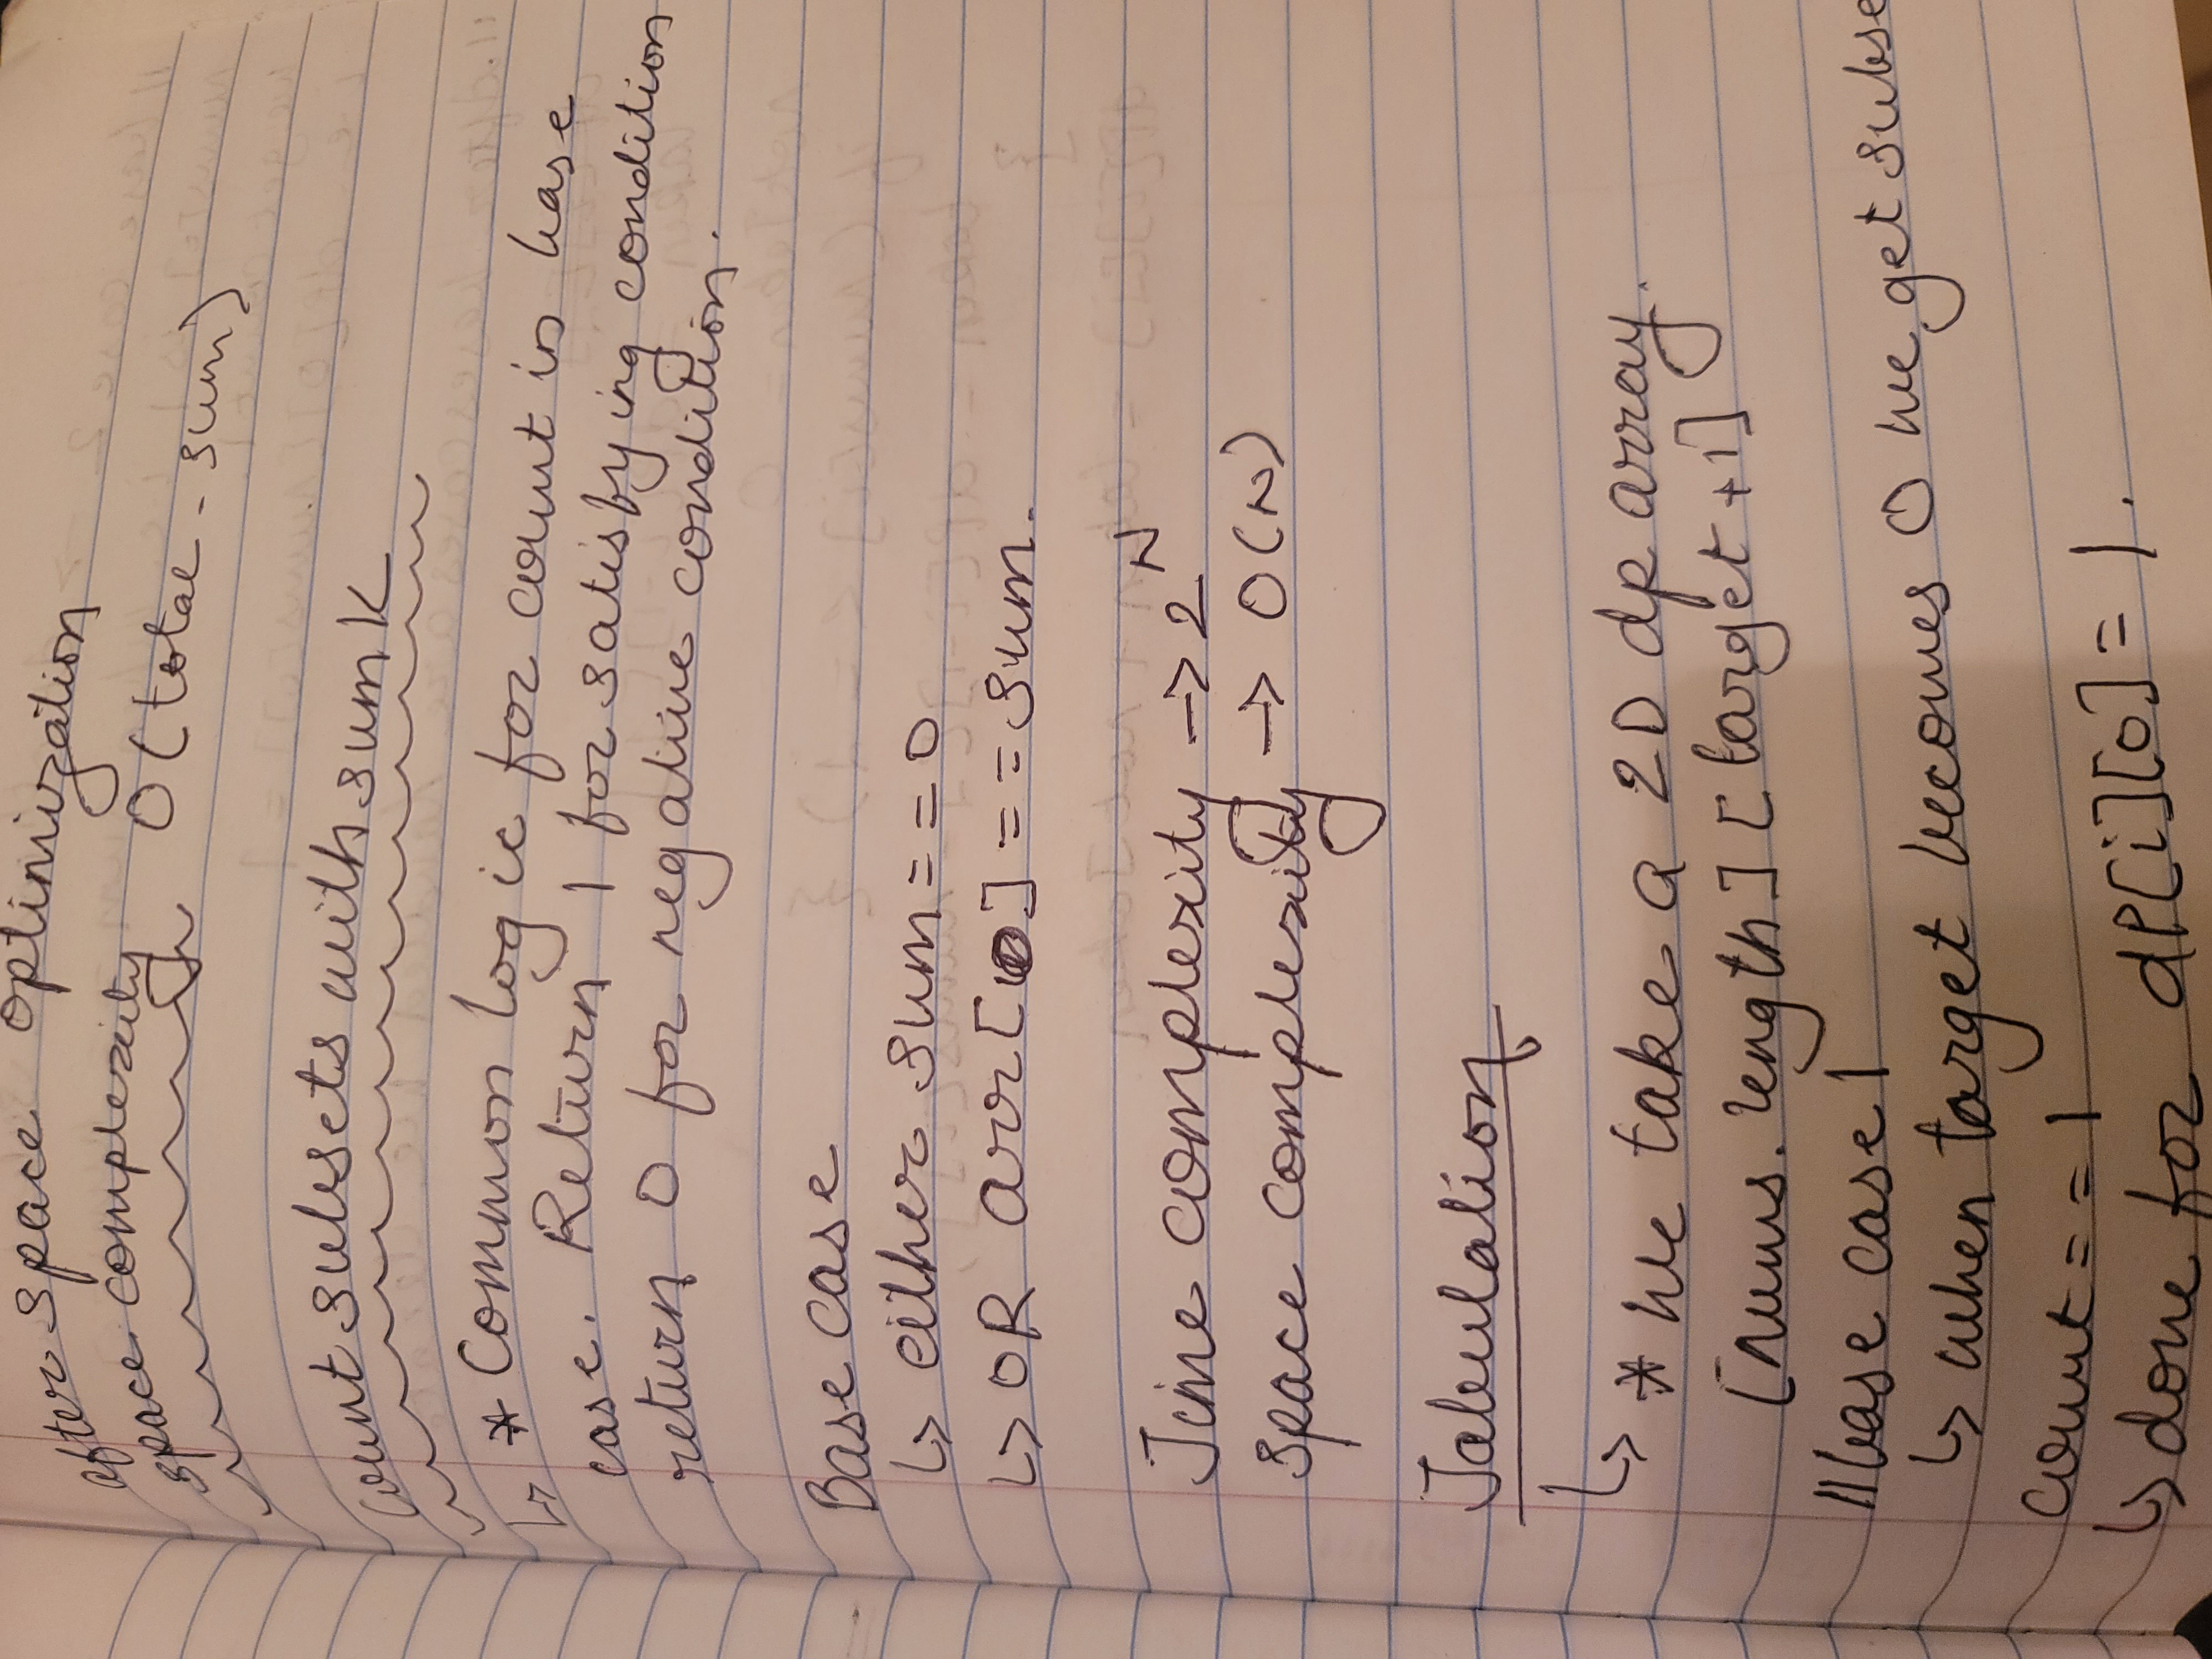 after space optimization
space complexity O(total - sum)
count subsets with sum K
↳ * Common logic for count in base
case. Return 1 for satisfying condition
return 0 for negative condition.
Base case
↳ either sum = = 0
↳ OR arr[0] = = sum.
Time complexity → 2^N
Space complexity → O(N)
Tabulation
↳ * We take a 2D dp array.
[nums.length] [target +1]
// base case 1
↳ when target becomes 0 we get subse
count = = 1
↳ done for dP[i][0] = 1.